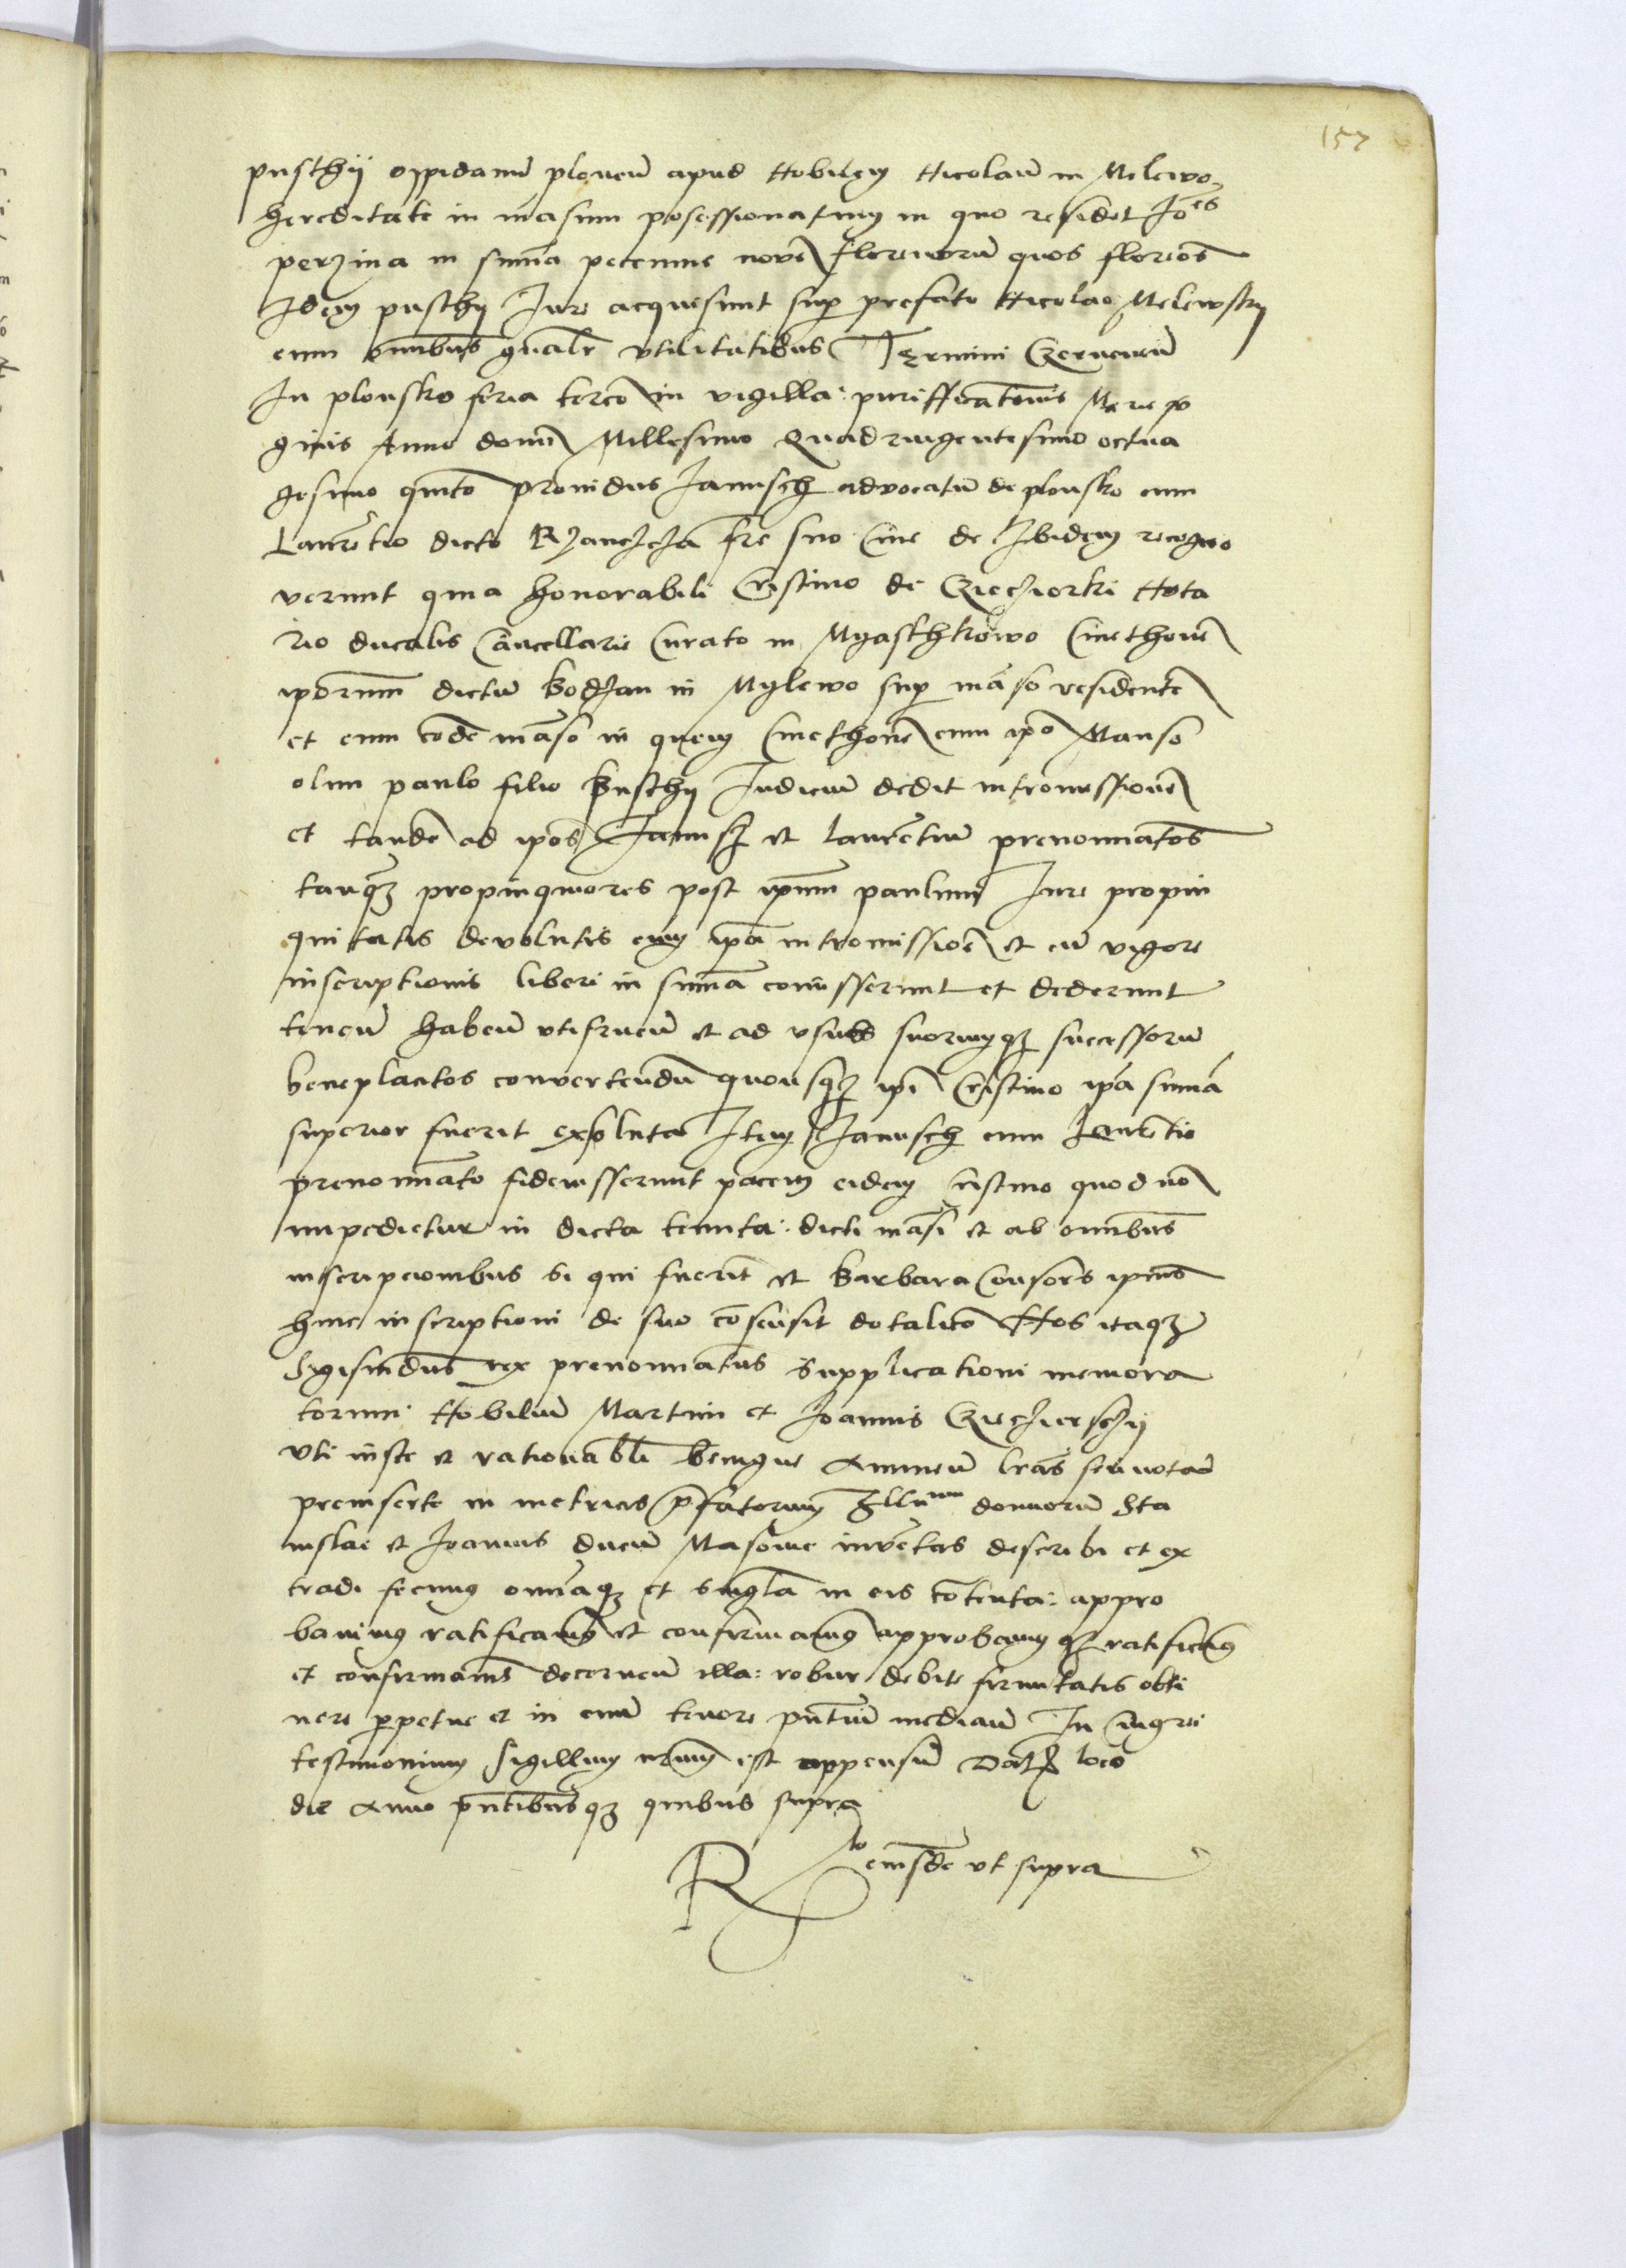 157
pusthÿ oppidanū ploneñ apud Nobilem Nicolaū in Milewo
hereditate in masum possessionatum in quo residet Joes
perzina in suma pecunie noue florenorū quos florēos
Idem pusthÿ Jure acquisiunt sup prefato Nicolao Milewskÿ
cum omibus gnalr vtilitatibus Termini Czerucneñ
In plonsko feria tercia in vigilla: purifficatōnis Marie
ginis Anno domi Millesimo Quadringentesimo octua
gesimo quīto prouidus Janusch advocatū de plonsko cum
Laurētio dicto fre suo de Ibidem recogno
verunt quia honorabili Cristino de Cziecziorki Nota
rio ducalis Cancellarie Curato in Myastkowo Cmethone
ipōrum dictū Bodzan in Mylewo sup māso residente
et cum eodē māso in quem Cmethonē cum ipo Manso
olim paulo filio Pusthÿ Judiciū dedit intromissionē
et tandē ad ipos Janusz et laurētium prenominatos
tanqz propinquiores post ipum paulum Jure propin
quitatis devolutis cum ipa intromissioē et cū vigore
inscriptionis liberi in sumā comisserunt et dederunt
teneñ habeñ vtifrueñ et ad vsus suorumqz successorū
beneplacitos convertendū quousqz ipi Cristino ipa sumā
superior fuerit exsoluta Item Janusch cum Laurētio
prenomiato fideiusserunt pacem eidem Cristino quod nō
impedietur in dicta tenuta: dicti māsi et ab omibus
inscripcionibus si qui fuerit et Barbara Consors ipius
huic inscriptioni de suo cōsensit dotalicio Nos itaqz
Sigismūdus rex prenomiatus supplicationi memora
torum Nobiliū Martini et Joannis Cziecziersczÿ
vti iuste et rationabili benigne Annueñ lras seu notas
preinserte in metricis pfatorum Illu donorū Sta
nislai et Joannis ducū Masouie invētas describi et ex
tradi fecimus omiaqz et singla in eis cōtenta: appro
bavimus ratificavimus et confirmavimus approbamusqz ratificamus
et confirmamus decerneñ illa: robur debite firmitatis obti
nere ppetue et in evum tenore pntium mediañ In cuius rei
testimonium Sigillum nrum est appensū Datū loco
die Anno pntibusqz quibus supra
Rlo eiusdē vt supra